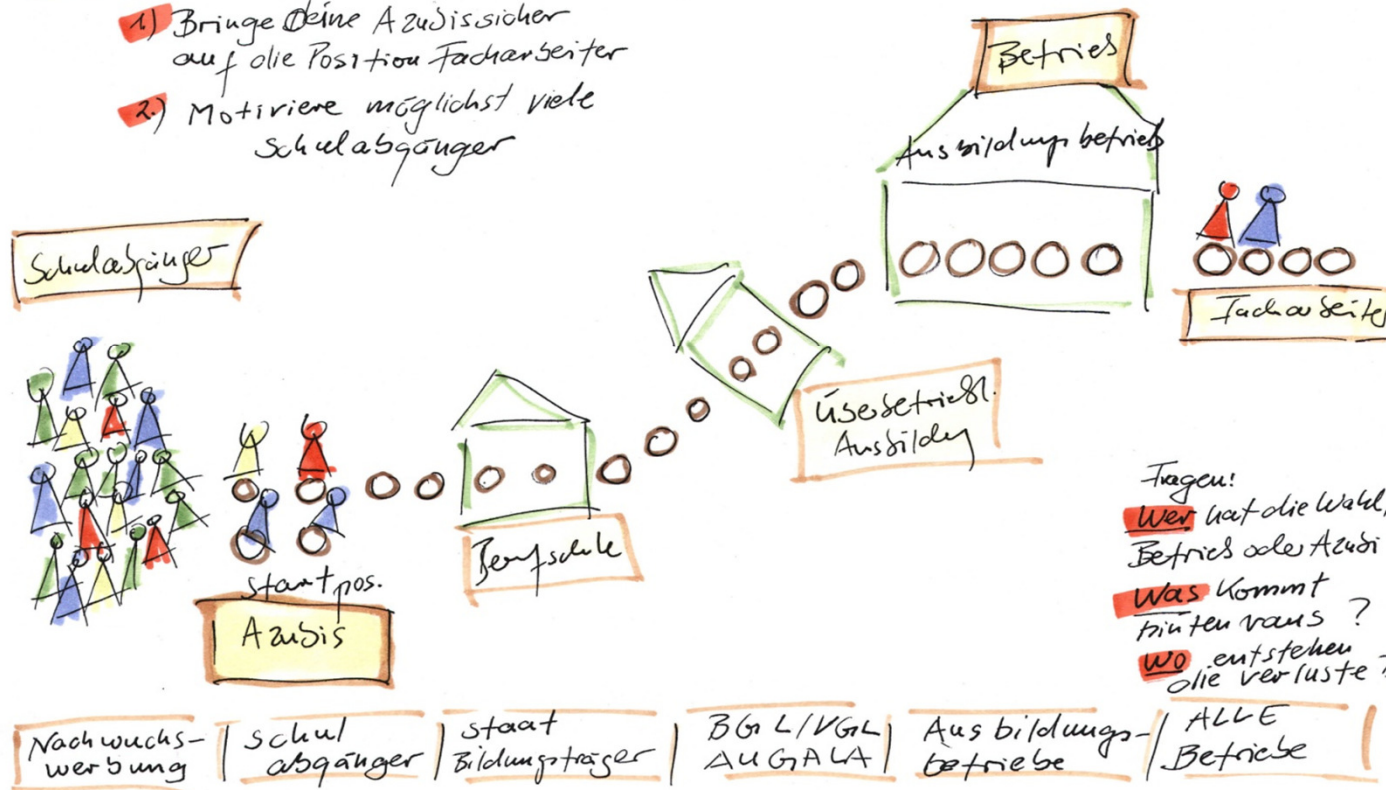 1) Bringe Deine Azubis sicher
auf die Position Facharbeiter
2.) Motiviere möglichst viele
Schulabgänger
Betrieb
Ausbildungsbetrieb
Schulabgänger
Facharbeiter
Überbetriebl.
Ausbildung
Berufschule
Startpos.
Azubis
Fragen:
Wer hat die Wahl,
Betrieb oder Azubi
Was kommt
hinten raus ?
Wo entstehen
die Verluste ?
Nachwuchs-
werbung
Schul
abgänger
Staat
Bildungsträger
BGL/VGL
AUGALA
Ausbildungs-
betriebe
ALLE
Betriebe